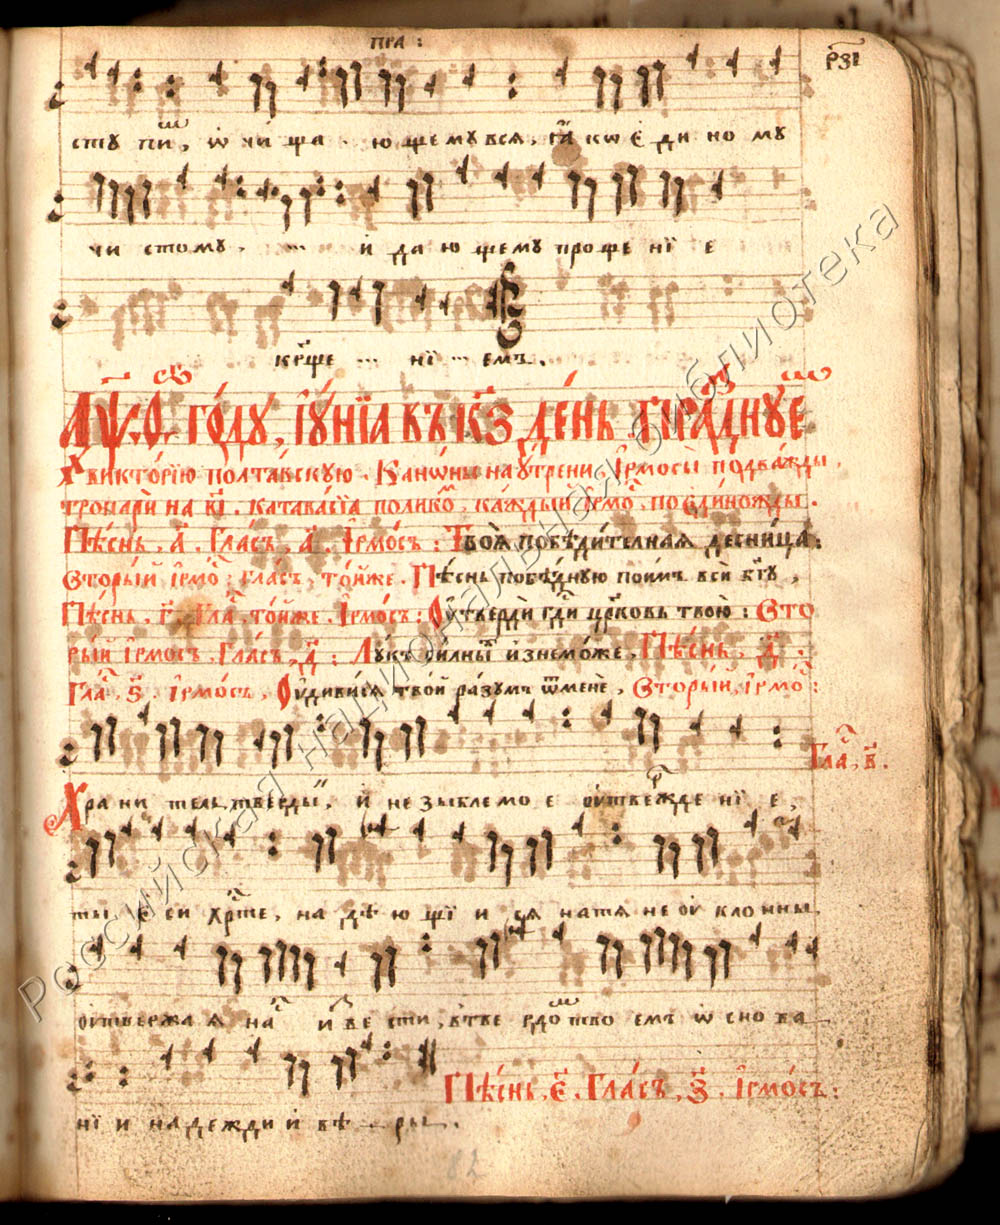 ПРА :
рзı
сту пи, ѡ чи ща ю щемувсѧ, ꙗкѡ є ди но му
чи стому, и да ю щему проще нї е
крⷭ҇ще нї емъ .
҂АѰ.Ѳ. го́ду, їꙋ́нїа въ к҃з де́нь
викторїю полта́вскую . Канѡ́ны на у́трени . І҆рмосы̀ подва́жды,
тропарѝ на . катава́сїа полико́ , ка́ждый і҆рмо́ , по є҆ди́ножды .
Пѣ́снь , а҃ . Гла́съ , а҃ , І҆рмо́съ : Твоѧ̀ побѣди́телнаѧ десни́ца :
Вторы́й і҆рмо́ : гла́съ , то́йже . Пѣ́снь побѣ́дную пои́мъ всѝ бг҃у ,
Пѣ́снь , г҃ . Гла , то́йже . І҆рмо́съ : Оу҆твердѝ гдⷭ҇и цр҃ковь твою̀ : Вто
ры́й і҆рмо́съ , Гла́съ , д҃ : Лу́къ си́лныⷯ и҆знемо́же , Пѣ́снь , д҃ .
Гла , ѕ҃ . І҆рмо́съ , Оу҆диви́сѧ тво́й ра́зумъ ѿменѐ , Вторы́й , і҆рмо́ :
Гла , в҃ .
Хра ни тель тверды , и не зыблемо е оутвержде нї е ,
ты є си хрⷭ҇те , на дѣ ю щї и сѧ натѧ не оу клонны
оутвержа ѧ на и ве сти , втве рдо тво емъ ѡ снова
нї и надежди и вѣ ры .
Пѣ́снь , є҃ . Гла́съ , з҃ . І҆рмо́съ :
62
Российская национальная библиотека